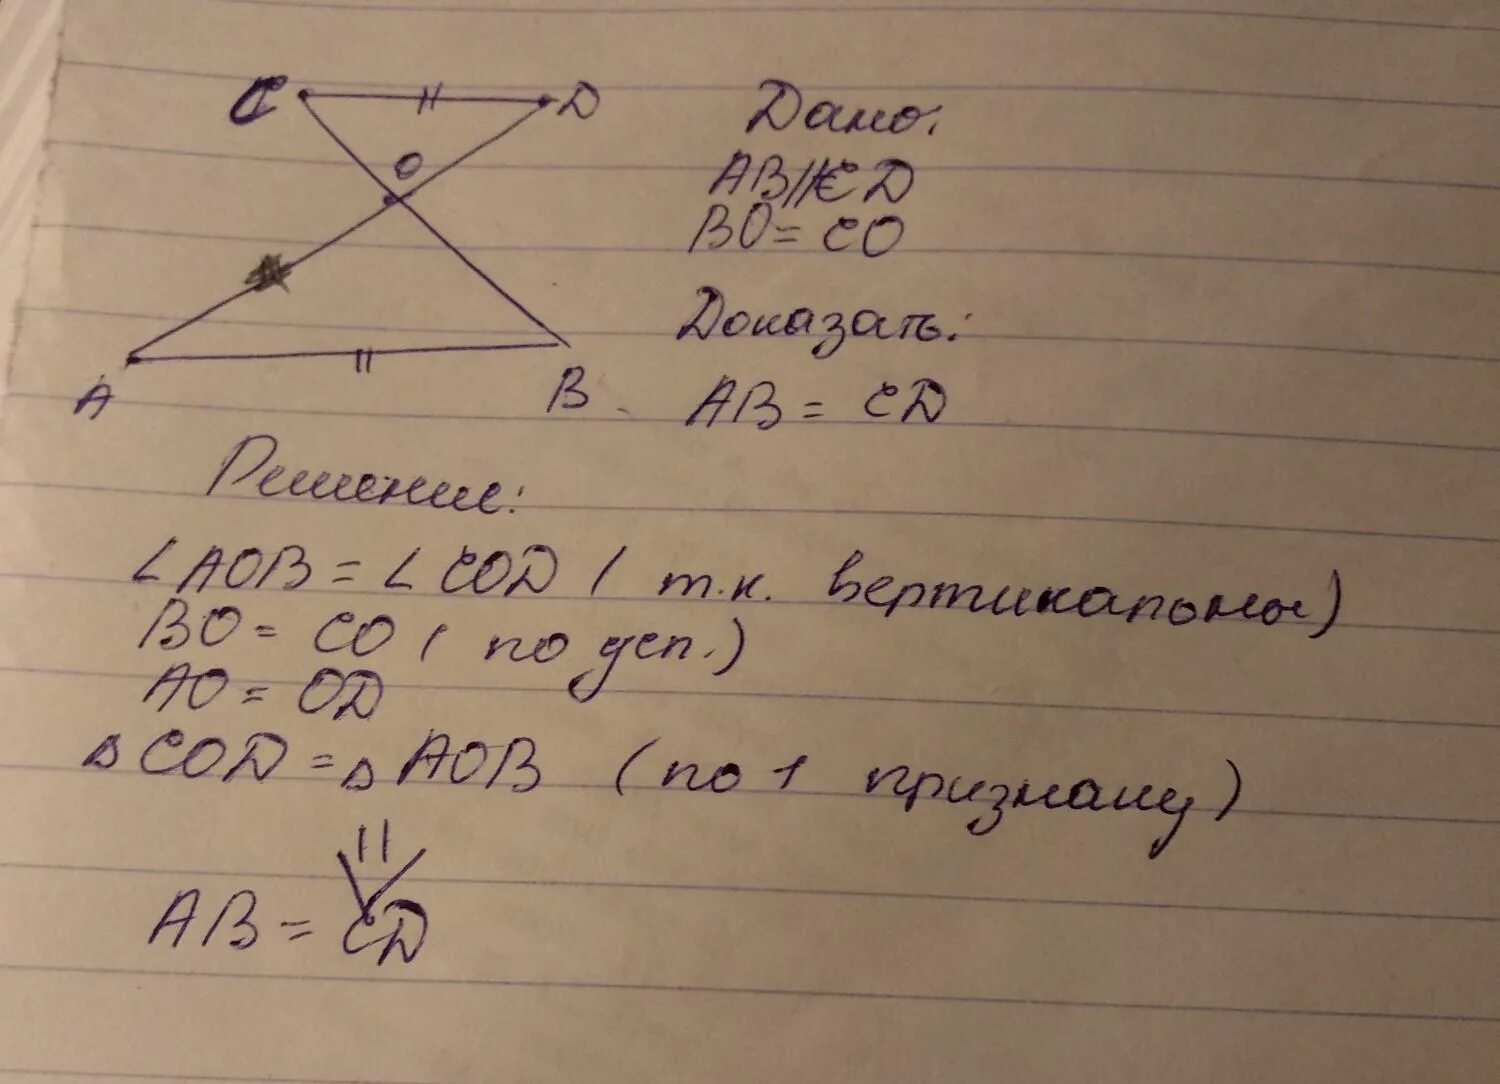 C D
O
A B
Дано:
AB||CD
BO = CO
Доказать:
AB = CD
Решение:
∠AOB = ∠COD (т.к. вертикальны)
BO = CO (по усл.)
AO = OD
△COD = △AOB (по 1 признаку)
⇓
AB = CD